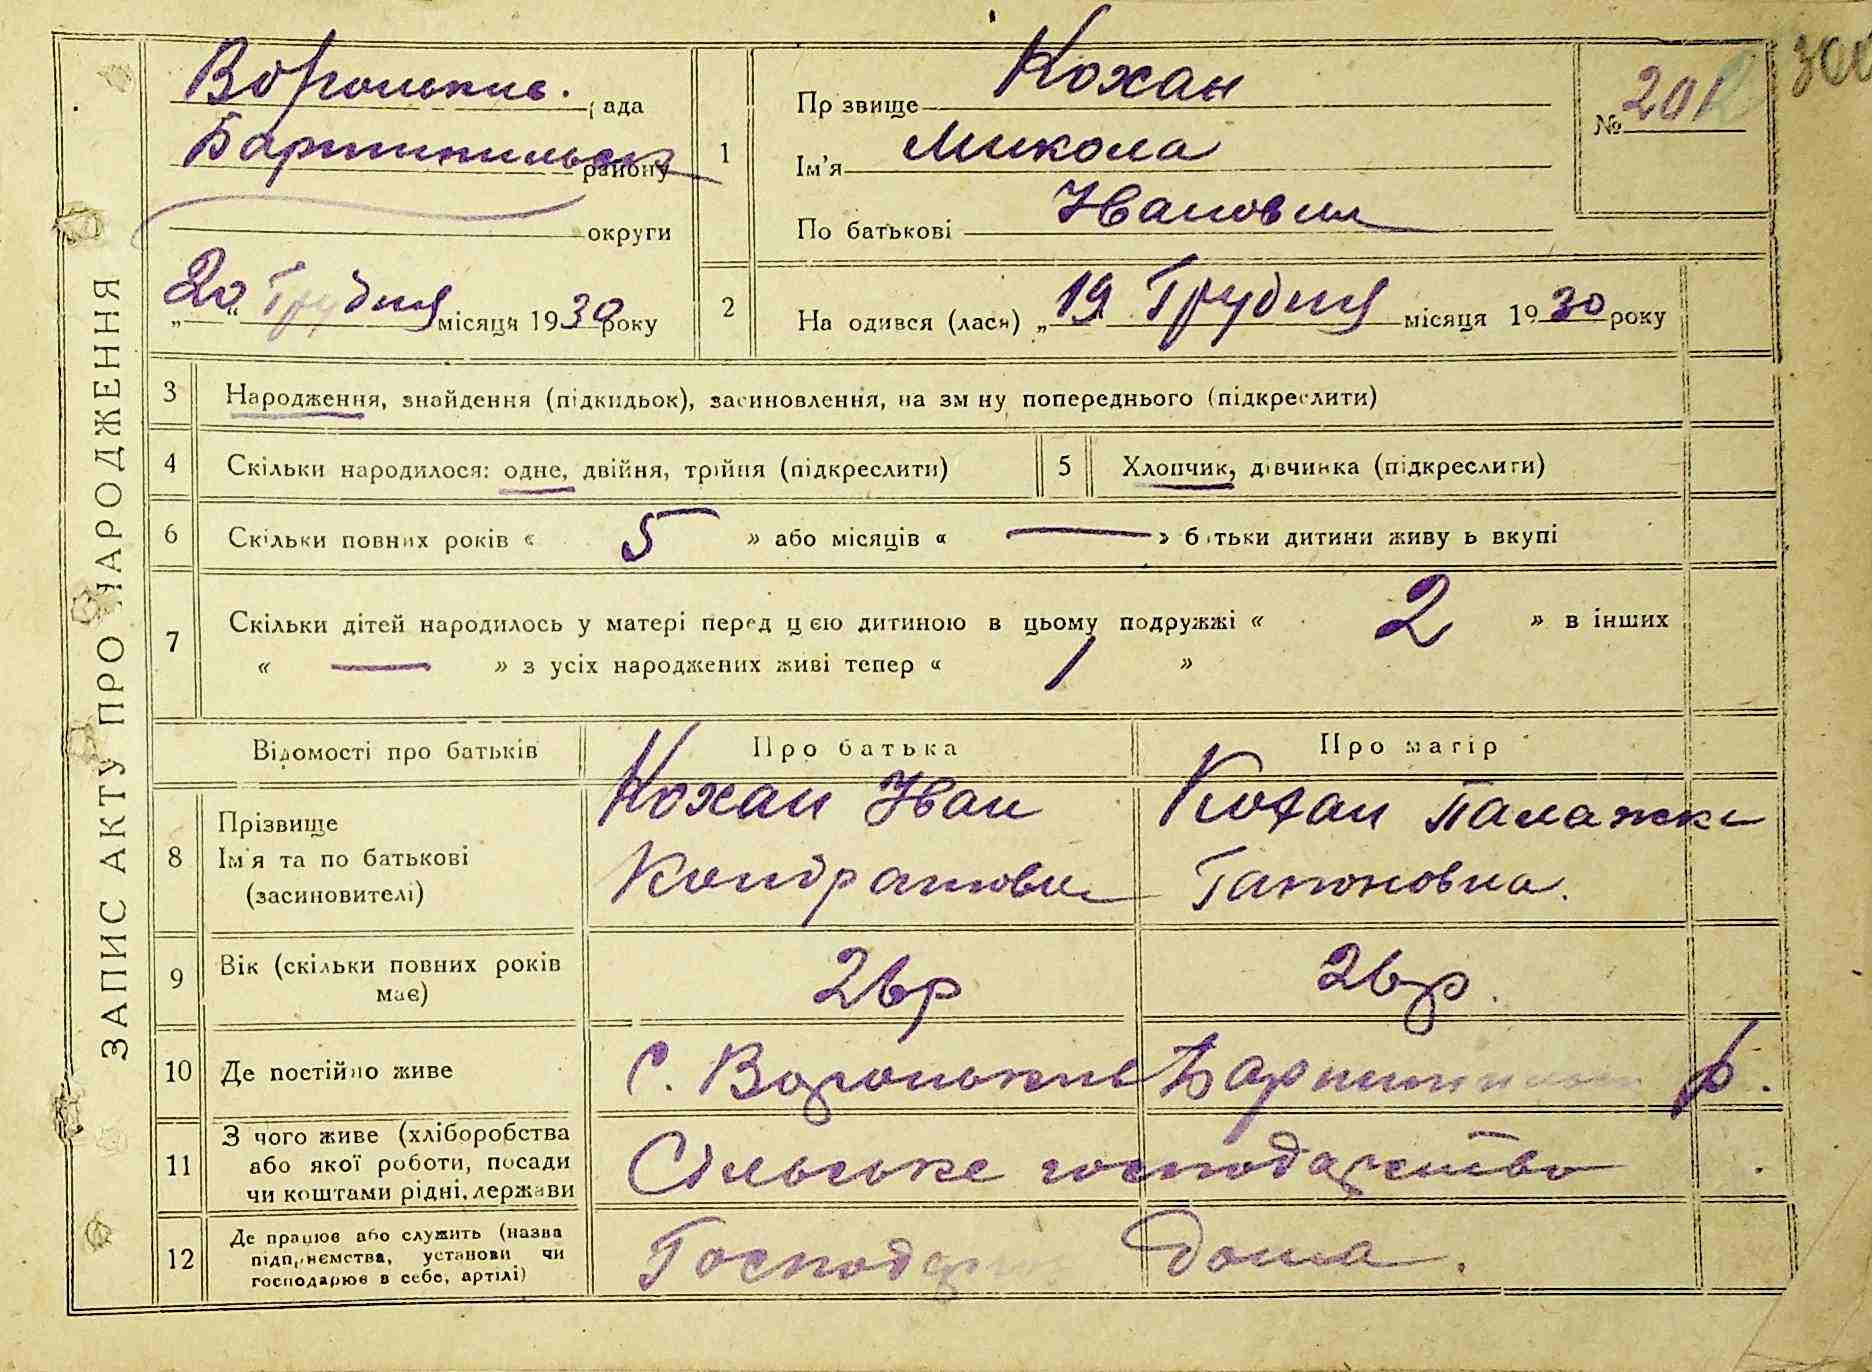 ЗАПИС АКТУ ПРО НАРОДЖЕННЯ
Вороньків. рада
району
округи
„20“ Грудня місяця 1930 року
1
Прзвище Кохан
Ім’я Микола
По батькові Иванович
№ 201
300
2
На одився (лася) „19“ Грудня місяця 1930 року
3 Народження, знайдення (підкидьок), засиновлення, на зм ну попереднього (підкреслити)
4 Скільки народилося: одне, двійня, трійня (підкреслити)
5 Хлопчик, дівчинка (підкреслити)
6 Скільки повних років « 5 » або місяців « — » бтьки дитини живу ь вкупі
7 Скільки дітей народилось у матері перед цією дитиною в цьому подружжі « 2 » в інших
« — » з усіх народжених живі тепер « 1 »
Відомості про батьків
Про батька
Про матір
8 Прізвище
Ім'я та по батькові
(засиновителі)
Кохан Иван
Кондратович
Кохан Палажка
Гапоновна.
9 Вік (скільки повних років
має)
26р
26р.
10 Де постійно живе
С. Вороньків р.
11 З чого живе (хліборобства
або якої роботи, посади
чи коштами рідні, держави
Сільське господарство
12 Де працює або служить (назва
підприємства, установи чи
господарює в себе, артілі)
Господар дома.